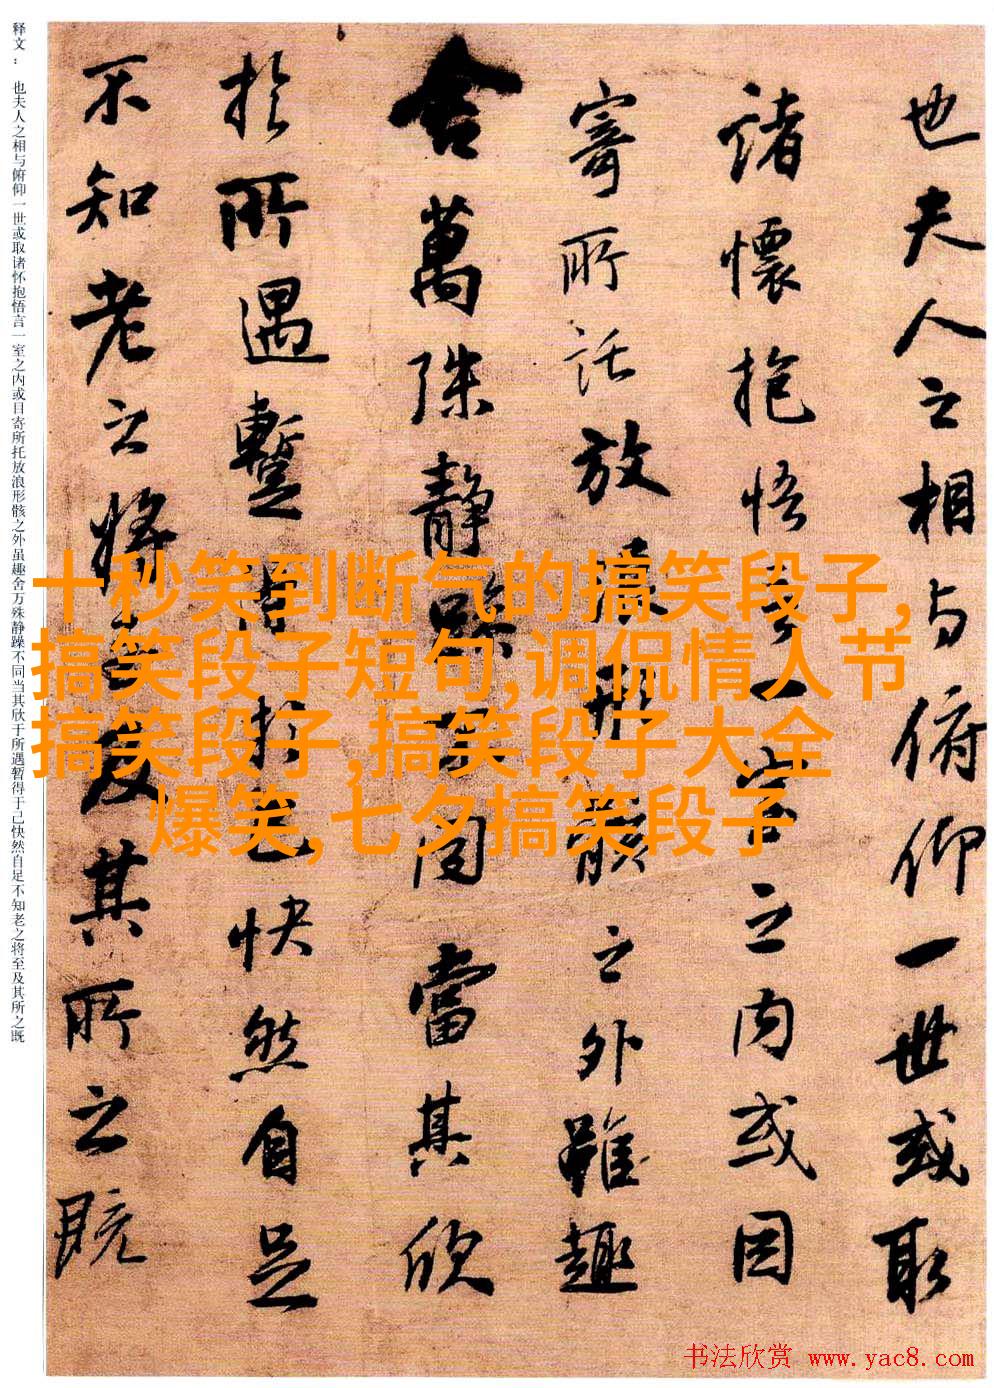 也夫人之相與俯仰一世或取
諸懷抱悟言一室之内或因
寄所託放浪形骸之外雖趣
舍萬殊靜躁不同當其欣
於所遇蹔得於己快然自足
不知老之將至及其所之既
释文：也夫人之相与俯仰一世或取诸怀抱悟言一室之内或目寄所托放浪形骸之外虽趣舍万殊静躁不同当其欣于所遇暂得于己快然自足不知老之将至及其所之既
十秒笑到断气的搞笑段子,
搞笑段子短句,调侃情人节
搞笑段子,搞笑段子大全
爆笑,七夕搞笑段子
书法欣赏 www.yac8.com